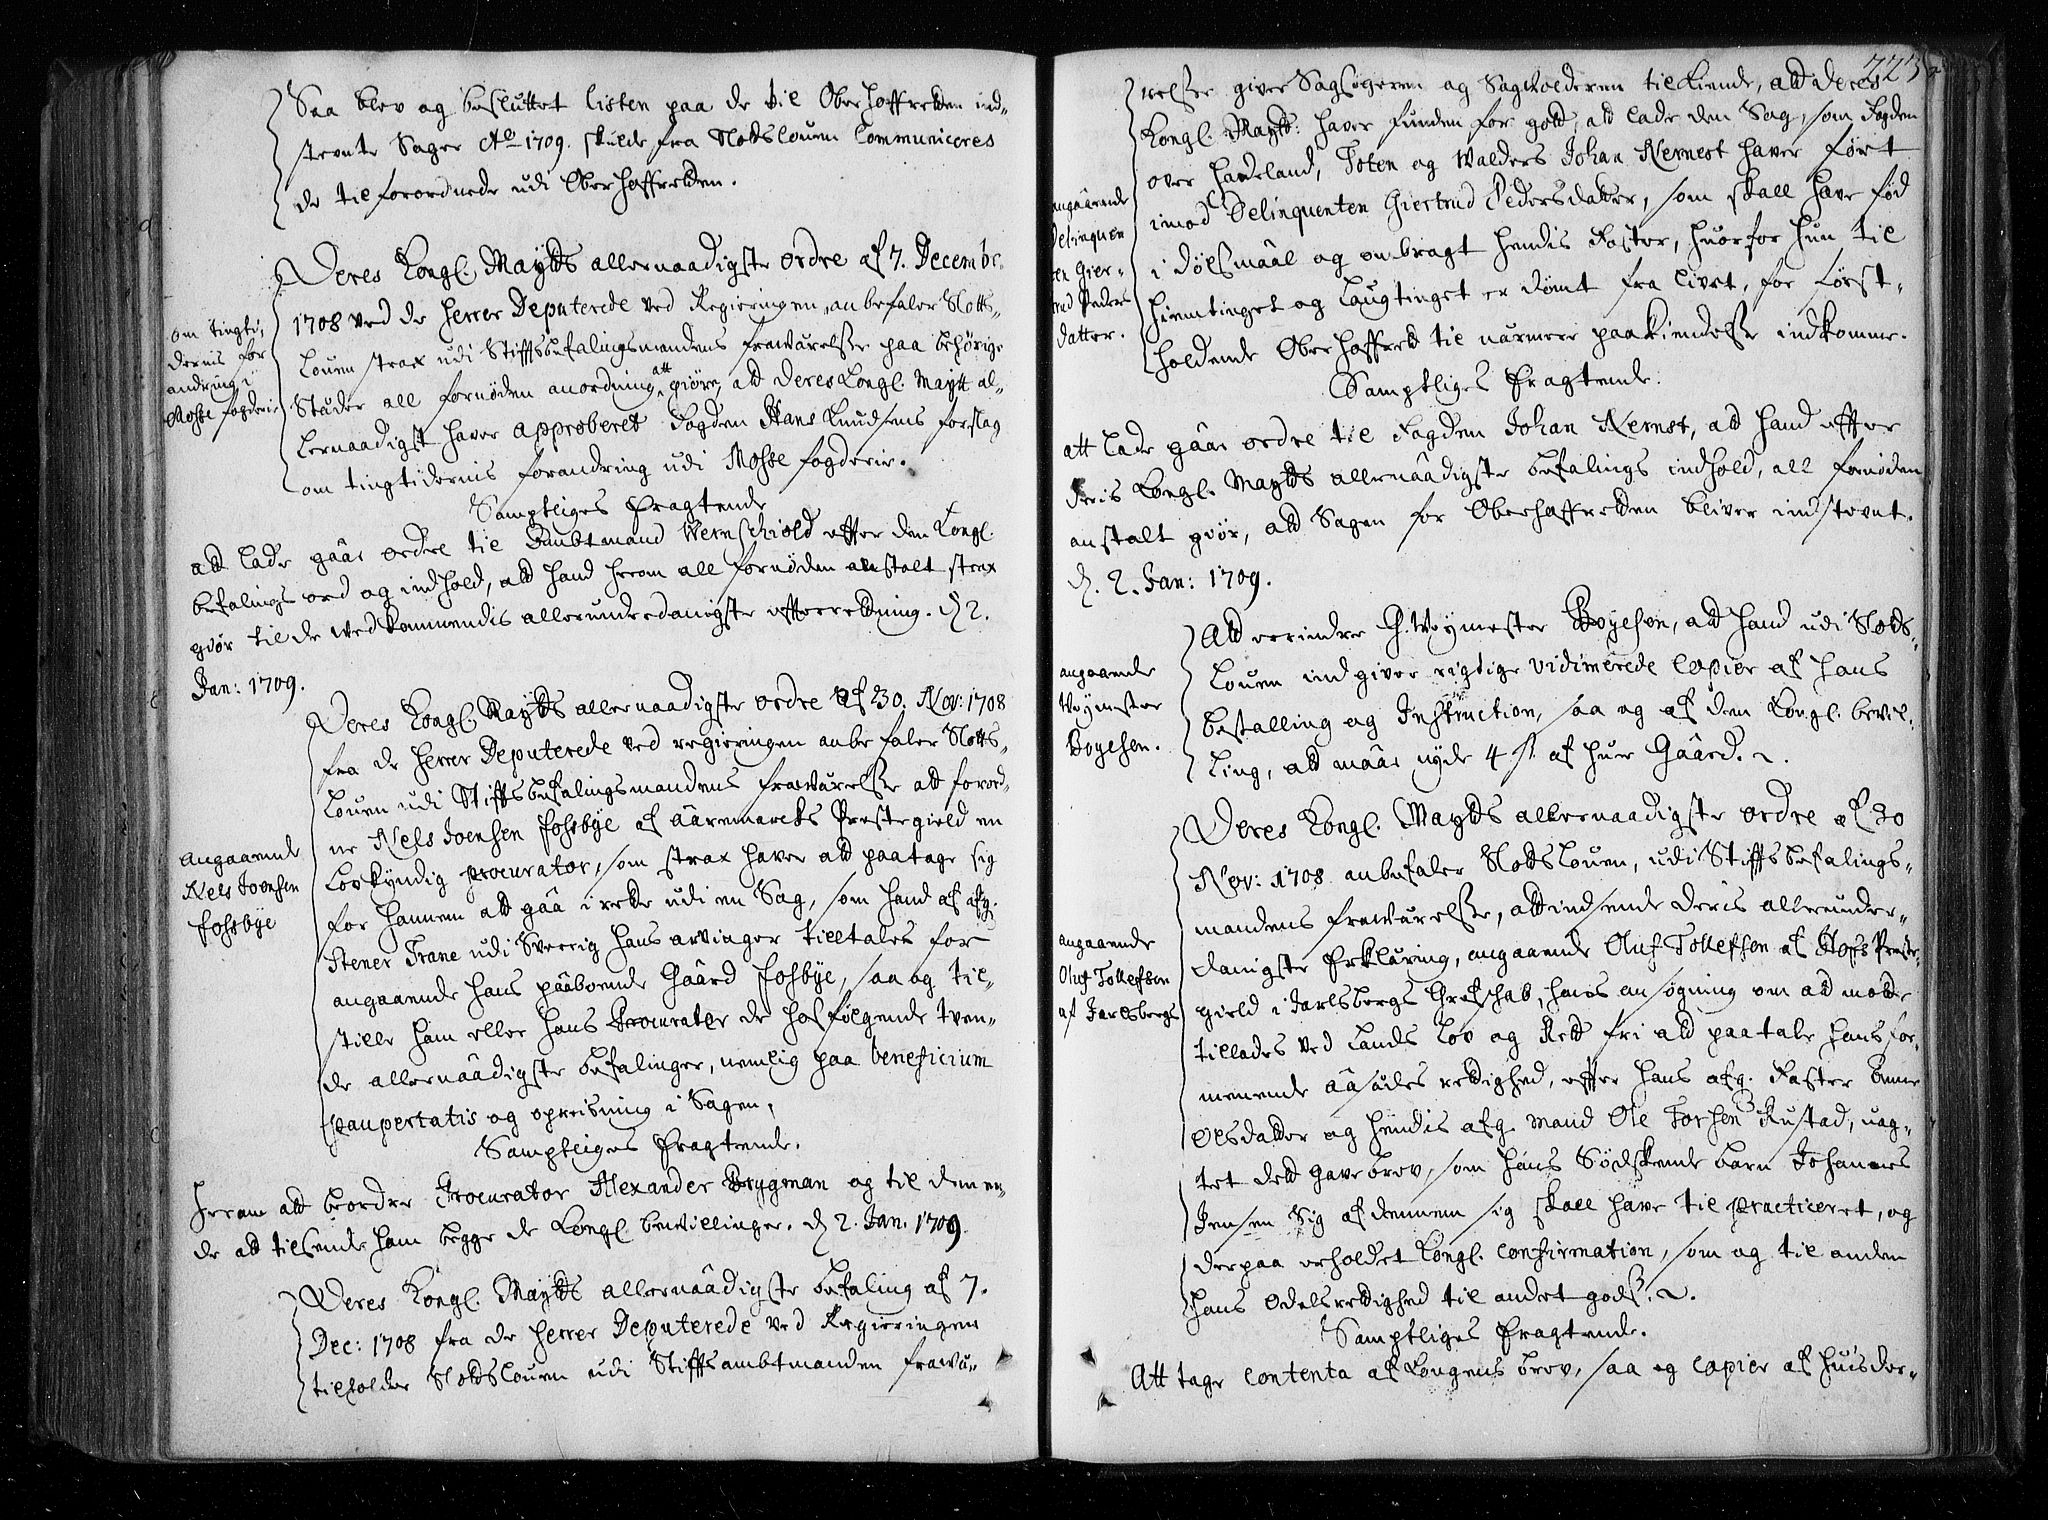 Saa blev og besluttet listen paa de til Oberhoffretten ind-
stevnte Sager Ao 1709. skulde fra Slotslouen Communiceres
de tilforordnede udi Oberhoffretten.
Om tingti-
dernis for
andring i
Mosse fogderie
Deres Kongl. Maytts allernaadigste ordre af 7. Decembr.
1708 ved de Herrer Deputerede ved Regieringen, anbefaler Slotts-
Louen strax udi Stifftsbefalingsmandens fraværelsse paa behørige
Stæder all fornøden anordning att giøre, att Deres Kongl. Maytt al-
lernaadigst haver approberet Fogden Hans Knudsens forslag
om tingtidernis forandring udi Mosse fogderie.
Samptliges Eragtende
att lade gaae ordre til Ambtmand Wernschiold effter den Kongl.
befalings ord og indhold, att hand herom all fornøden anstalt strax
giør til de wedkommendis allerunderdanigste efterretning. d 2.
Jan: 1709.
Angaaende
Nels Joensen
Fosbye
Deres Kongl. Maytts allernaadigste ordre af 30. Nov: 1708
fra de Herrer Deputerede ved regieringen anbefaler Slotts-
Louen udi Stifftsbefalingsmandens fraværelsse att forord-
ne Nels Joensen Fosbye af Aaremarcks Prestegield en
Lovkyndig procurator, som strax haver att paatage sig
for hannem att gaa i rette udi en Sag, som hand af afg.
Stener Trane udi Sverrig hans arvinger tilltales for
angaaende hans paaboende Gaard Fosbye, saa og til-
stille ham eller hans Procurator de hosfølgende tven-
de allernaadigste befalinger, nemlig paa beneficium
paupertatis og opreisning i Sagen,
Samptliges Eragtende.
Herom att beordre Procurator Alexander Brygman og til den en-
de att tilsende ham begge de Kongl bewillinger. d 2. Jan. 1709.
Deres Kongl. Maytts allernaadigste befaling af 7.
Dec: 1708 fra de Herrer Deputerede ved Regieringen
tilholder Slotslouen udi Stifftsambtmanden fravæ-
323
angaaende
Delinquen
ten Gier-
trud Peders
datter.
relsse giver Sagsøgeren og Sagvolderen tilkiende, att deres
Kongl. Maytt: haver funden for gott, att lade den Sag, som Fogden
over Hadeland, Toten og Walders Johan Nernest haver ført
imod Delinquenten Giertrud Pedersdatter, som skall have fød
i dølsmaal og ombragt hendis Foster, huorfor hun til
Hiemtinget og Laugtinget er dømt fra livet, for først-
holdende Oberhoffrett til nærmere paakiendelsse indkomme.
Samptliges Eragtende.
att lade gaae ordre til Fogden Johan Nernst, att hand effter
deris Kongl. Maytts allernaadigste befalings indhold, all fornøden
anstalt giør, att Sagen for Oberhoffretten bliver indstevnt.
d. 2. Jan: 1709.
angaaende
Weymester
Boyesen.
Att erindre G. Weymester Boyesen, att hand udi Slots-
Louen indgiver rigtige vidimerede Copier af hans
bestalling og Instruction, saa og af den Kongl. bevil-
ling, att maae nyde 4 s af huer Gaard.
angaaende
Oluf Tollefsen
af Jarlsbergs
Deres Kongl. Maytts allernaadigste ordre af 30
Nov: 1708 anbefaler Slotslouen, udi Stifftsbefalings-
mandens fraværelsse, att indsende deris allerunder-
danigste Erklæring, angaaende Oluf Tollefsen af Hofs Preste-
gield i Jarlsbergs Grefschab, hans ansøgning om att motte
tillades ved Lands Lov og Rett fri att paatale hans for-
menende aasædes rettighed, effter hans afg. Faster Anne
Olsdatter og hendis afg. mand Ole Torsen Rustad, uag-
tet dett gavebrev, som hans Sødskende barn Johannes
Jensen sig af dennem sig skall have til practiceret, og
derpaa erholdet Kongl. Confirmation, som og til anden
hans Odelsrettighed til andet gods.
Samptliges Eragtende.
Att tage Contenta af Kongens brev, saa og Copier af huis der-